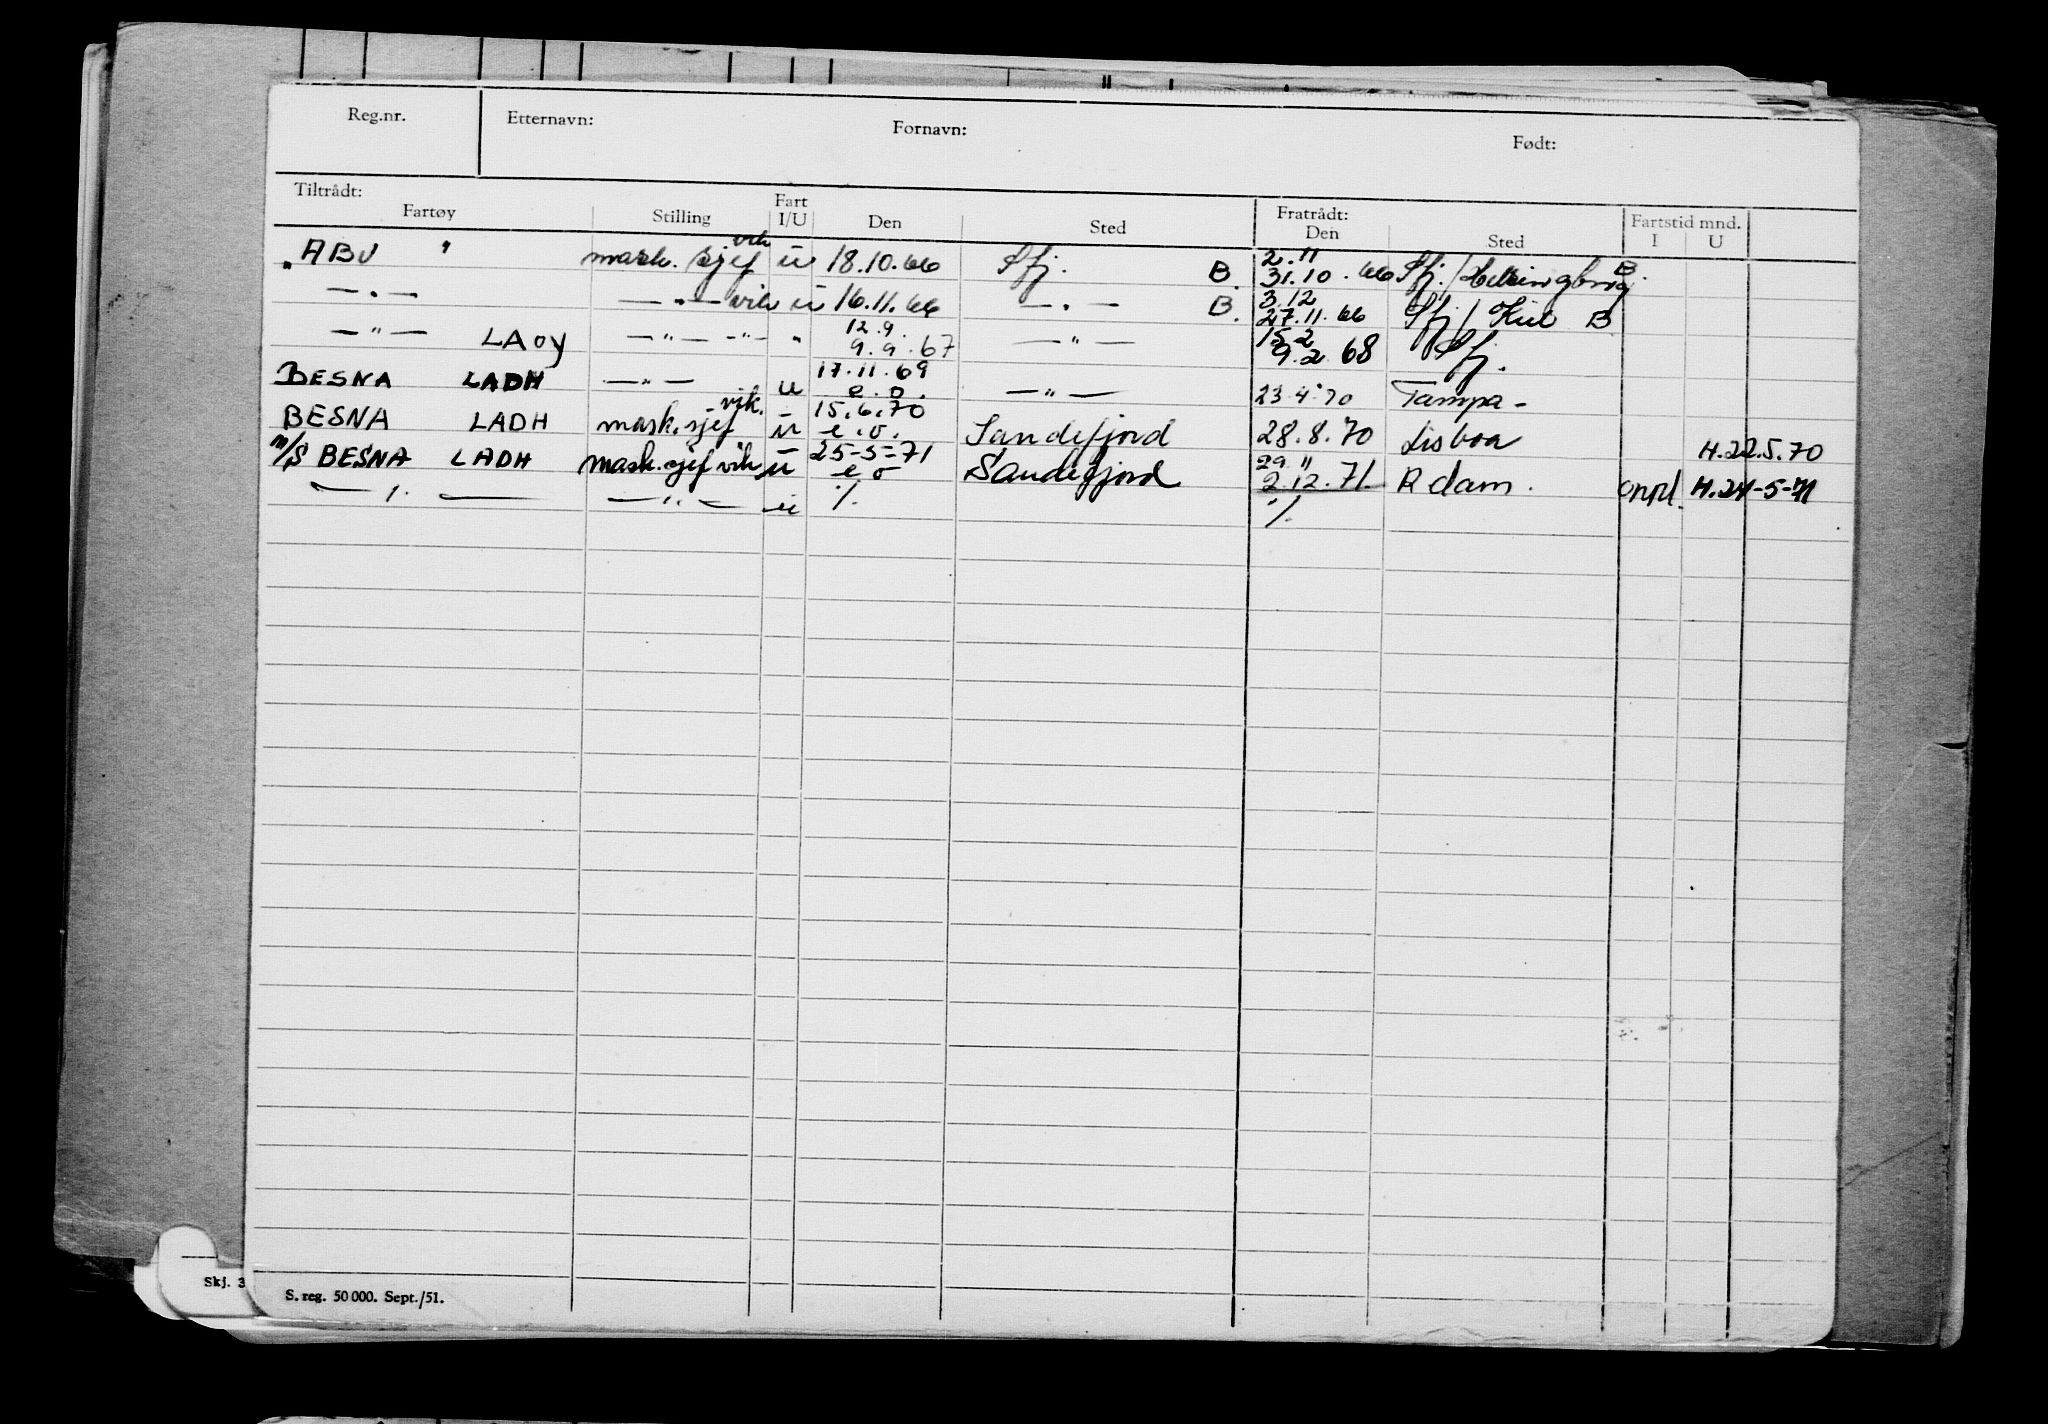 Reg.nr. Etternavn: Fornavn: Født:
Tiltrådt: Fratrådt: Fartstid mnd.
Fartøy Stilling Fart I/U Den Sted Den Sted I U
" ABU " mask. sjef vik ü 18.10.66 Sfj. B. 2.11 31.10.66 Sfj./Helsingborg B.
—"— —"— vik ü 16.11.66 —"— B. 3.12 27.11.66 Sfj/Kiel B
—"— LAOY —"— -"- " 12.9 9.9.67 —"— 15.2 9.2.68 Sfj.
BESNA LADH —"— u 17.11.69 e.o. —"— 23.4.70 Tampa -
BESNA LADH mask.sjef vik. ü 15.6.70 e.o. Sandefjord 28.8.70 Lisboa H.22.5.70
M/S BESNA LADH mask.sjef vik ü 25-5-71 e o Sandefjord 29.11 2.12.71 Rdam. oppd. H.24-5-71
—"— —"— ü ./. ./.
Skj. 3
S. reg. 50 000. Sept./51.